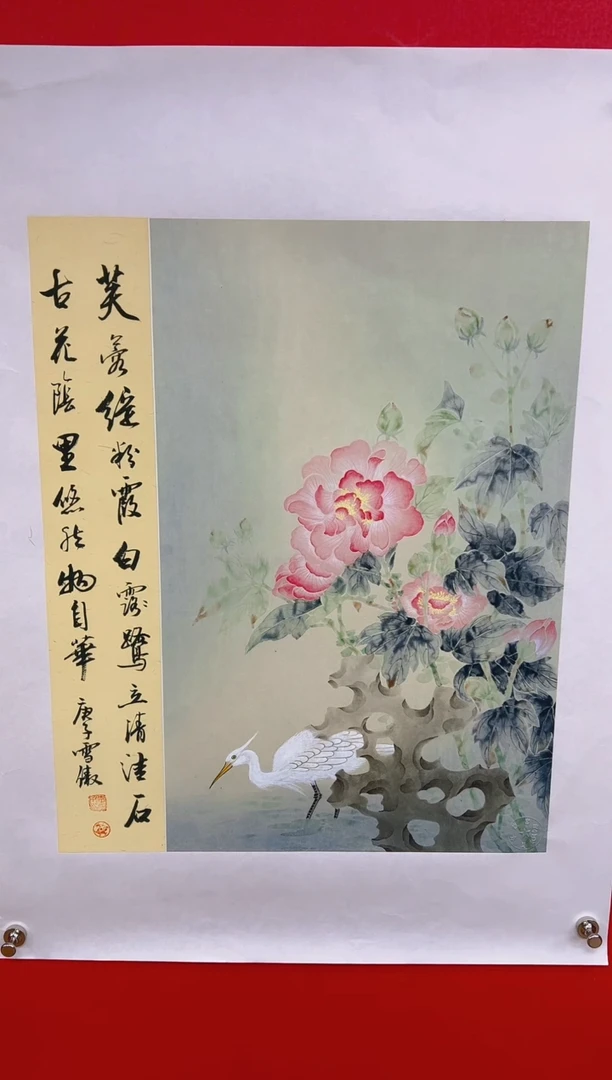 芙蓉綻粉霞白露鷺立清洼石
古花蔭里悠然物自華
庚子雪傲